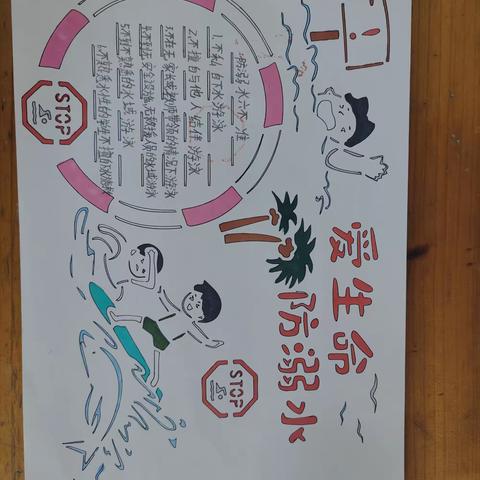 爱生命
防溺水
防溺水六不准
1.不私自下水游泳
2.不擅自与他人结伴游泳
3.不在无家长或教师带领的情况下游泳
4.不到无安全设施、无救援人员的水域游泳
5.不到不熟悉的水域游泳
6.不熟悉水性的学生不擅自下水施救
STOP
STOP
!